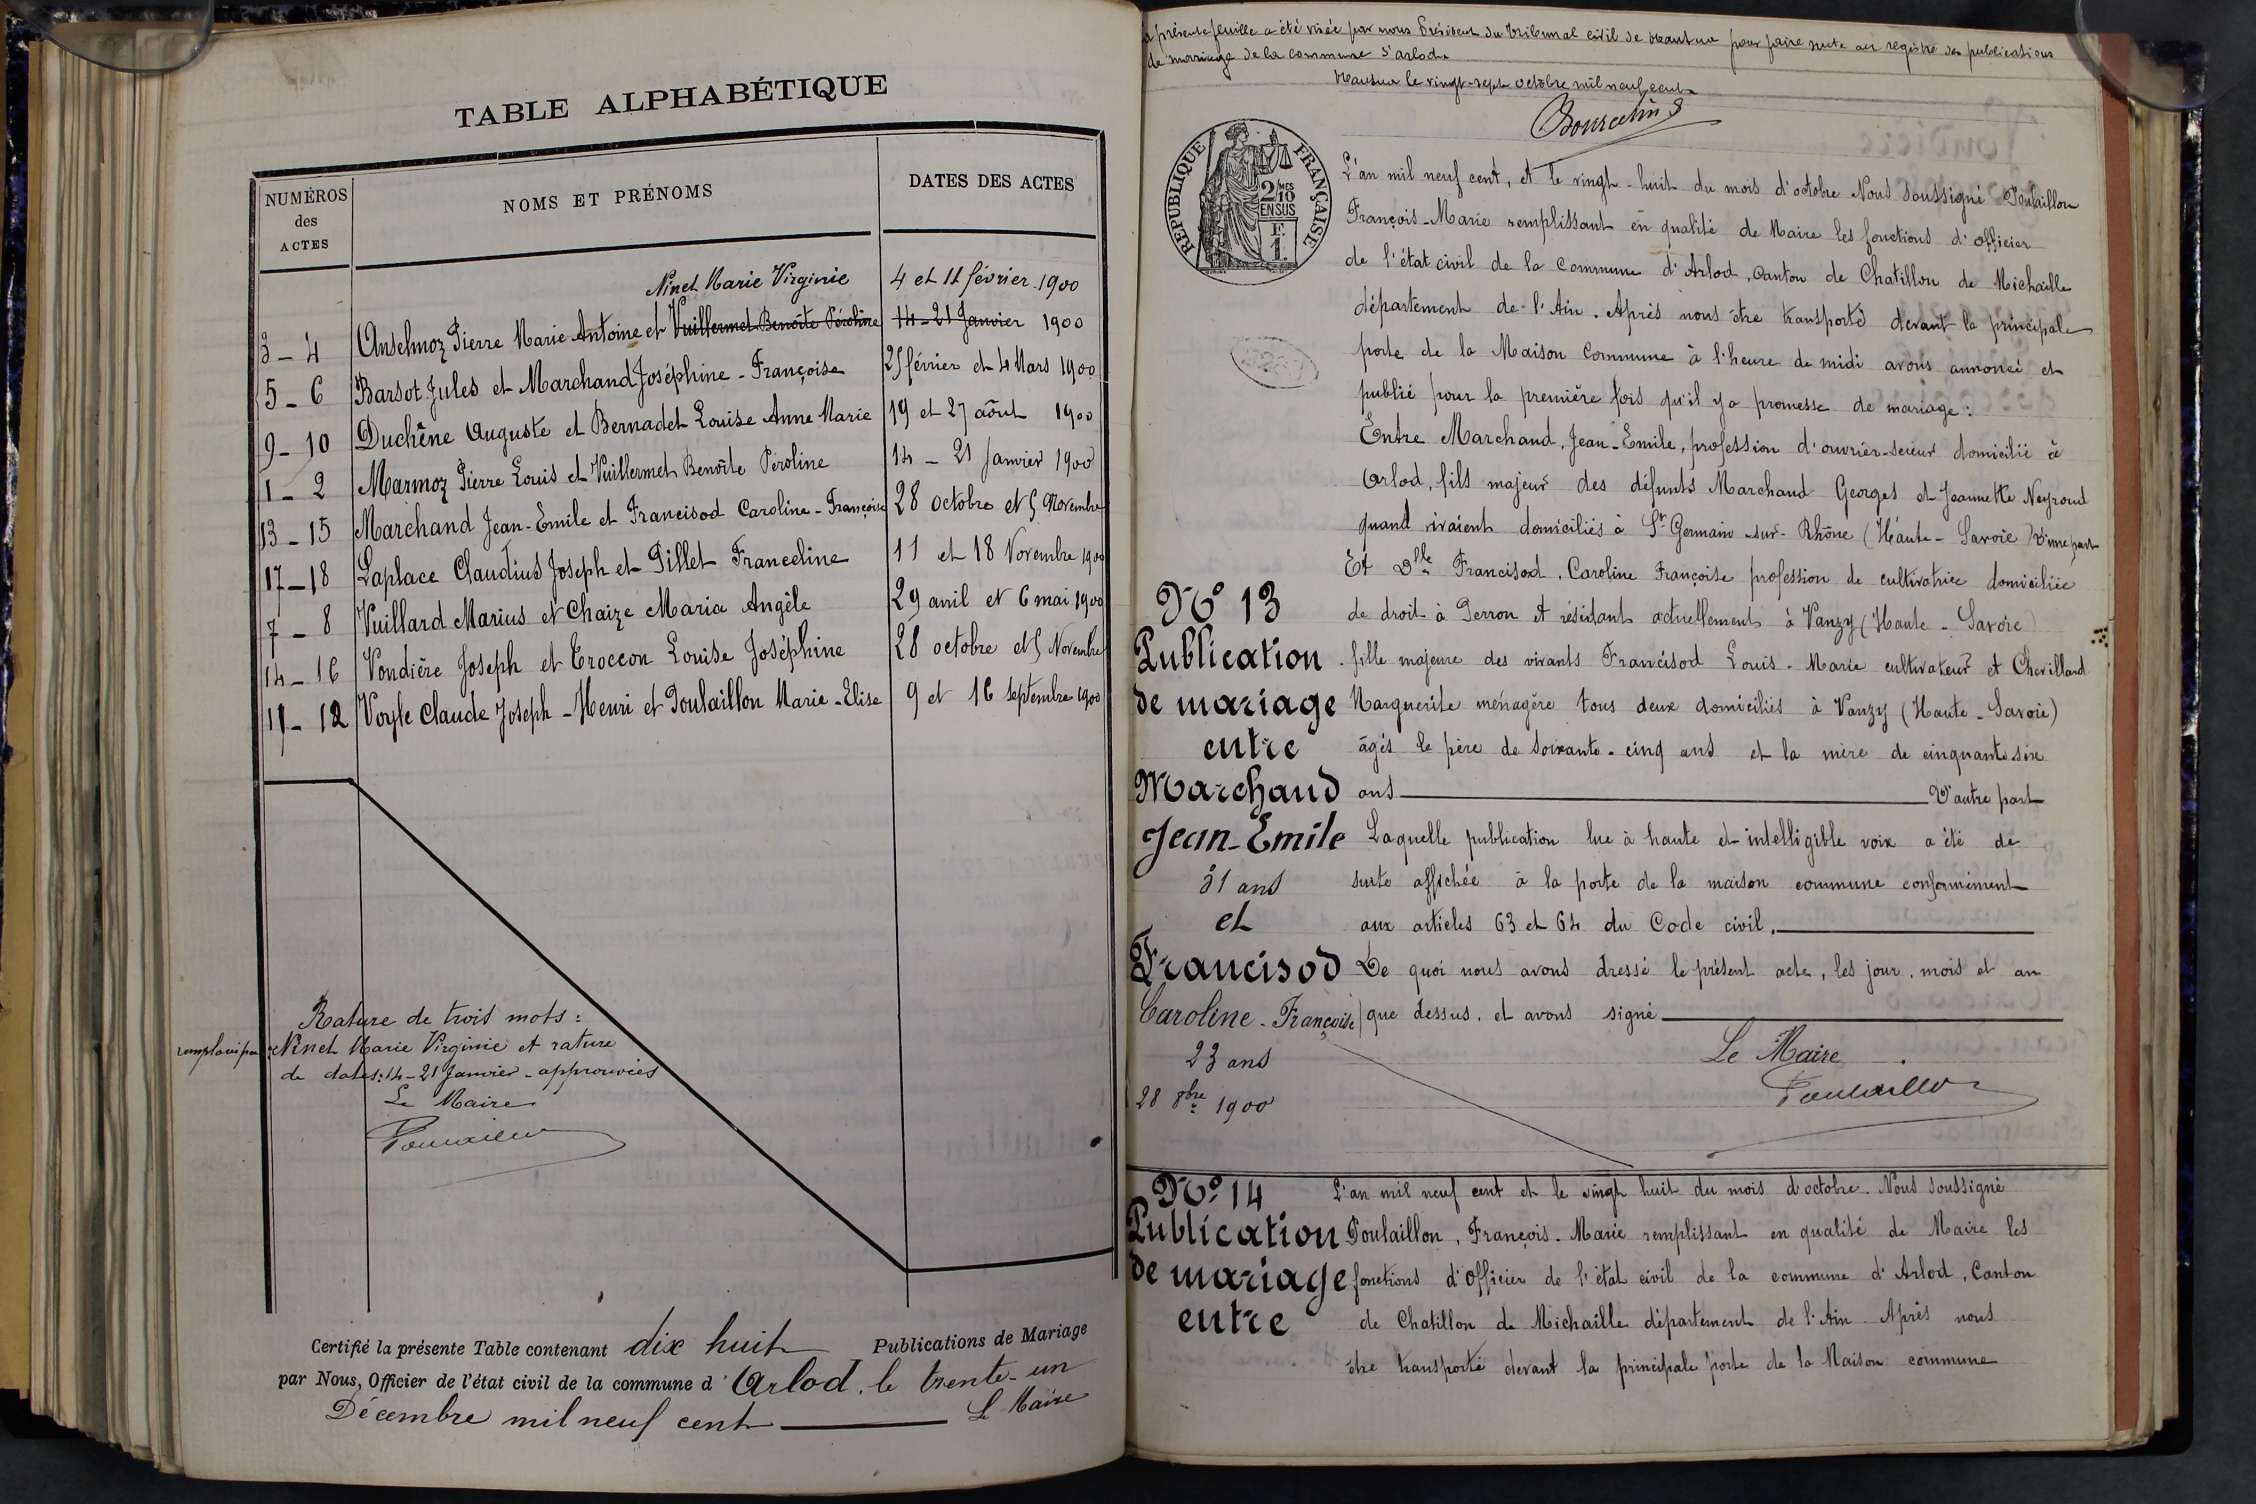 TABLE ALPHABÉTIQUE
NUMÉROS
des
ACTES
NOMS ET PRÉNOMS
DATES DES ACTES
Ninet Marie Virginie 4 et 11 février 1900
3 - 4 Anselmoz Pierre Marie Antoine et Vuillermet Benoîte Péroline 14 - 21 Janvier 1900
5 - 6 Barsot Jules et Marchand Joséphine - Françoise 25 février et 4 Mars 1900
9 - 10 Duchêne Auguste et Bernadet Louise Anne Marie 19 et 27 août 1900
1 - 2 Marmoz Pierre Louis et Vuillermet Benoîte Péroline 14 - 21 Janvier 1900
13 - 15 Marchand Jean-Emile et Francisod Caroline - Françoise 28 octobre et 5 Novembre
17 - 18 Laplace Claudius Joseph et Pillet Franceline 11 et 18 Novembre 1900
7 - 8 Vuillard Marius et Chaize Maria Angèle 29 avril et 6 mai 1900
14 - 16 Vondière Joseph et Troccon Louise Joséphine 28 octobre et 5 Novembre
11 - 12 Voyle Claude Joseph - Henri et Poulaillon Marie - Elise 9 et 16 septembre 1900
Rature de trois mots :
remplacé par : Ninet Marie Virginie et rature
de dates : 14 - 21 Janvier - approuvées
Le Maire
Poulaillon
Certifié la présente Table contenant dix huit Publications de Mariage
par Nous, Officier de l'état civil de la commune d'Arlod, le trente-un
Décembre mil neuf cent
Le Maire
La présente feuille a été visée par nous Président du Tribunal civil de Nantua pour faire suite au registre des publications
de mariage de la commune d'Arlod.
Nantua le vingt-sept octobre mil neuf cent.
RÉPUBLIQUE FRANÇAISE
2/10 MES
EN SUS
F.
1.
L'an mil neuf cent, et le vingt-huit du mois d'octobre Nous soussigné Poulaillon
François-Marie remplissant en qualité de Maire les fonctions d'officier
de l'état civil de la Commune d'Arlod, Canton de Chatillon de Michaille
département de l'Ain. Après nous être transporté devant la principale
porte de la Maison Commune à l'heure de midi avons annoncé et
publié pour la première fois qu'il y a promesse de mariage :
Entre Marchand, Jean-Emile, profession d'ouvrier-scieur domicilié à
Arlod, fils majeur des défunts Marchand Georges et Jeannette Neyroud
quand vivaient domiciliés à St Germain-sur-Rhône (Haute-Savoie) d'une part
Et Dlle Francisod, Caroline Françoise profession de cultivatrice domiciliée
de droit à Perron et résidant actuellement à Vanzy (Haute-Savoie)
fille majeure des vivants Francisod Louis-Marie cultivateur et Chevilland
Marguerite ménagère tous deux domiciliés à Vanzy (Haute-Savoie)
âgés le père de soixante-cinq ans et la mère de cinquante six
ans d'autre part
Laquelle publication lue à haute et intelligible voix a été de
suite affichée à la porte de la maison commune conformément
aux articles 63 et 64 du Code civil.
De quoi nous avons dressé le présent acte, les jour, mois et an
que dessus, et avons signé
Le Maire
Poulaillon
No 13
Publication
de mariage
entre
Marchand
Jean-Emile
31 ans
et
Francisod
Caroline-Françoise
23 ans
28 8bre 1900
No 14
Publication
de mariage
entre
L'an mil neuf cent et le vingt huit du mois d'octobre. Nous soussigné
Poulaillon, François-Marie remplissant en qualité de Maire les
fonctions d'Officier de l'état civil de la commune d'Arlod, Canton
de Chatillon de Michaille département de l'Ain. Après nous
être transporté devant la principale porte de la Maison commune